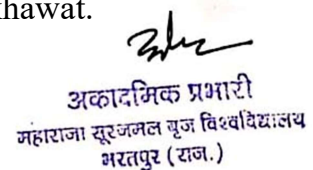 hawat.
अकादमिक प्रभारी
महाराजा सूरजमल बृज विश्वविद्यालय
भरतपुर (राज.)